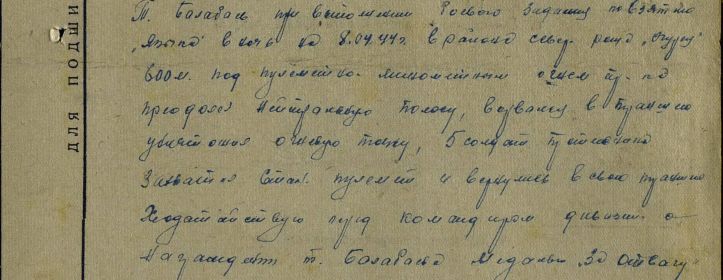 для подши
Т. Балабан при выполнении боевого задания по взятию
"языка" в ночь на 8.04.44г. в районе север. роща "Огурец"
800м. под пулеметно минометным огнем пр-ка
преодолел нейтральную полосу, ворвался в траншею
уничтожил огневую точку, 5 солдат противника
Захватил Стан. пулемет и вернулись в свою траншею
Ходатайствую перед командиром дивизии о
награждении т. Балабана Медалью "За отвагу"